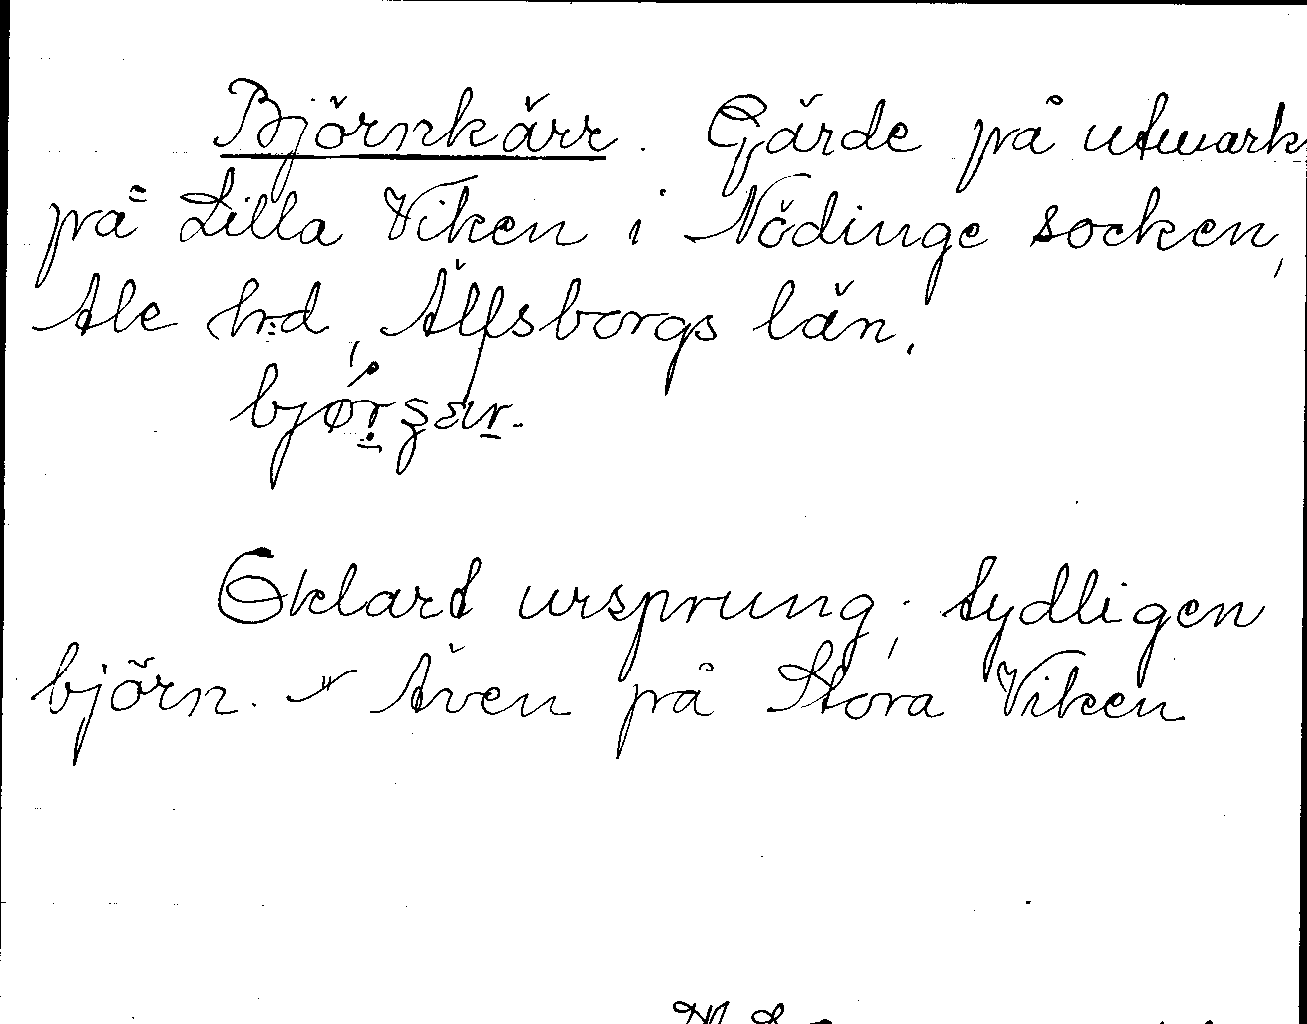 Björnkärr. Gärde på utmark
på Lilla Viken i Nödinge socken,
Ale hd, Älfsborgs län.
Oklart ursprung; tydligen
björn. Även på Stora Viken